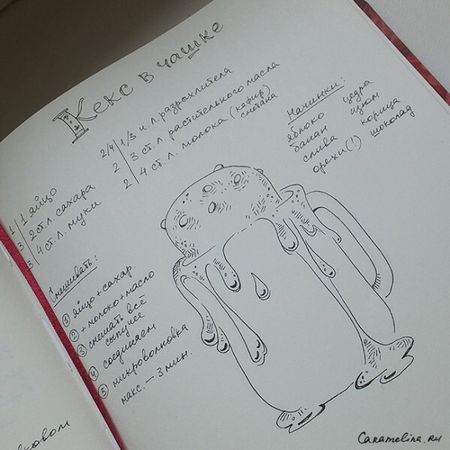 Кекс в чашке
1 | 1 яйцо
3 | 2 ст.л сахара
3 | 4 ст.л муки
2/4 | 1/3 ч.л. разрыхлителя
2 | 3 ст.л. растительного масла
2 | 4 ст.л. молока (кефир)
сметана
Начинки:
яблоко
банан
слива
орехи(!)
цедра
изюм
корица
шоколад
Смешивать:
① яйцо + сахар
② + молоко + масло
③ смешать всё
сыпучее
④ соединяем
⑤ микроволновка
макс. — 3 мин.
Caramelina.ru